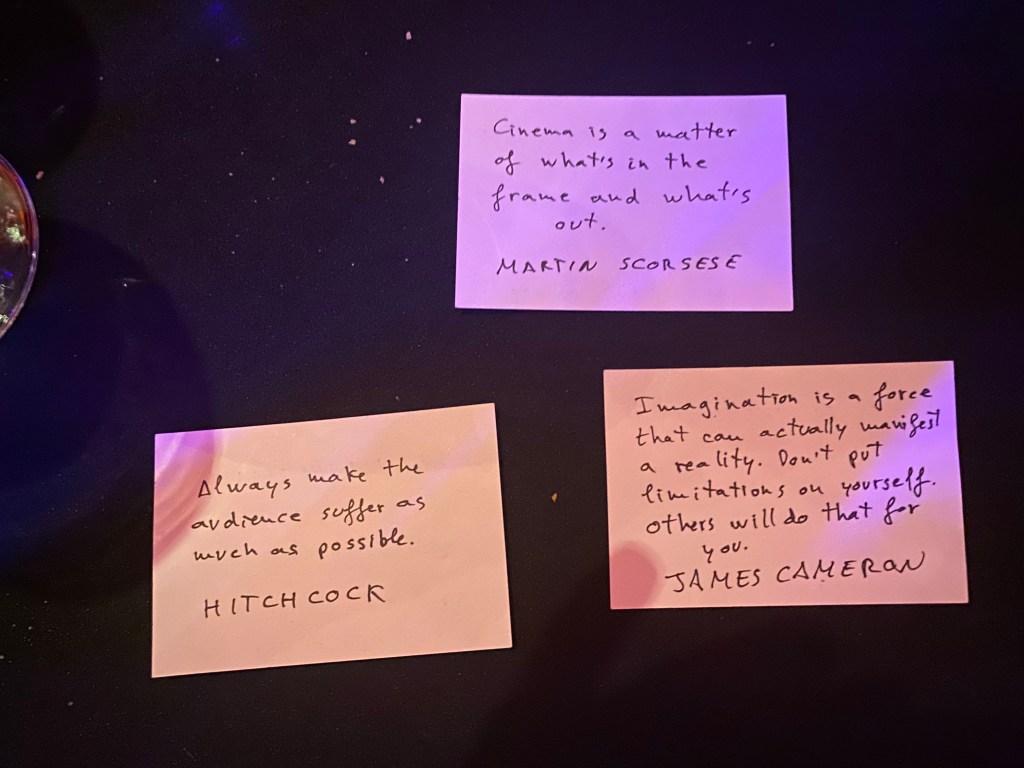 Cinema is a matter
of what's in the
frame and what's
out.
MARTIN SCORSESE
Always make the
audience suffer as
much as possible.
HITCHCOCK
Imagination is a force
that can actually manifest
a reality. Don't put
limitations on yourself.
others will do that for
you.
JAMES CAMERON